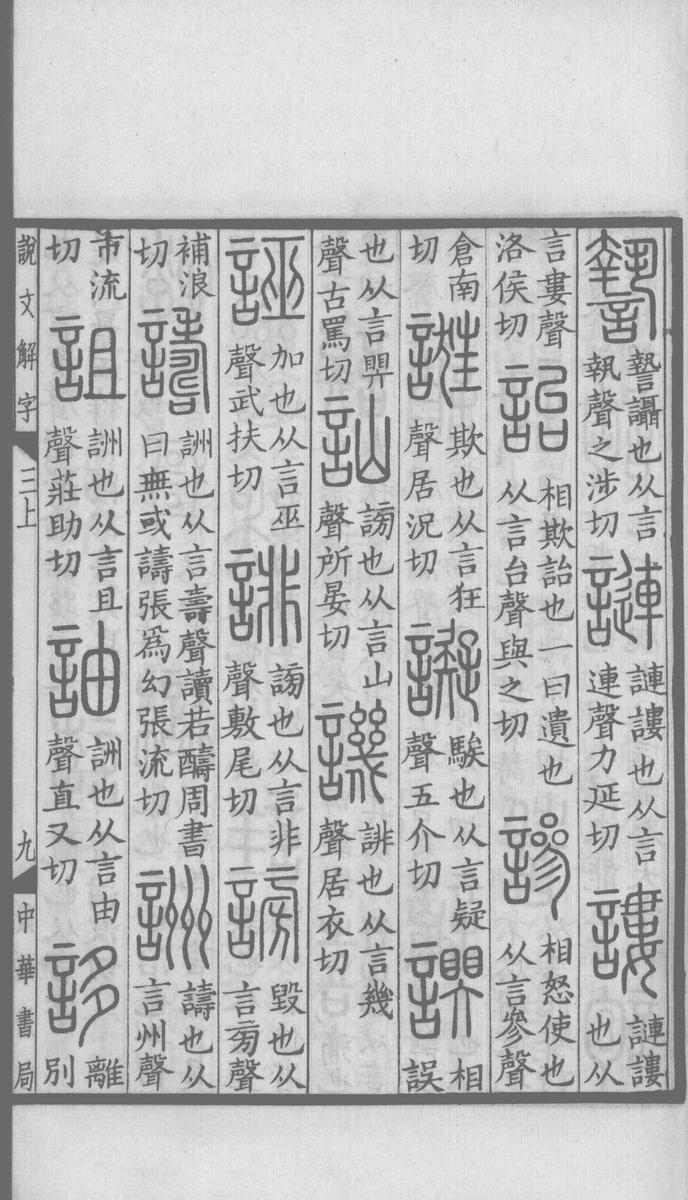 謺謺讘也从言執聲之涉切謰謰謱也从言連聲力延切謱謰謱也从
言婁聲洛侯切詒相欺詒也一曰遺也从言台聲與之切謲相怒使也从言參聲
倉南切誑欺也从言狂聲居況切譺騃也从言疑聲五介切相誤
也从言聲古罵切訕謗也从言山聲所晏切譏誹也从言幾聲居衣切
誣加也从言巫聲武扶切誹謗也从言非聲敷尾切謗毀也从言㫄聲
補浪切譸詶也从言壽聲讀若醻周書曰無或譸張爲幻張流切詶譸也从言州聲
市流切詛詶也从言且聲莊助切䛆詶也从言由聲直又切誃離別
說文解字 三上 九 中華書局